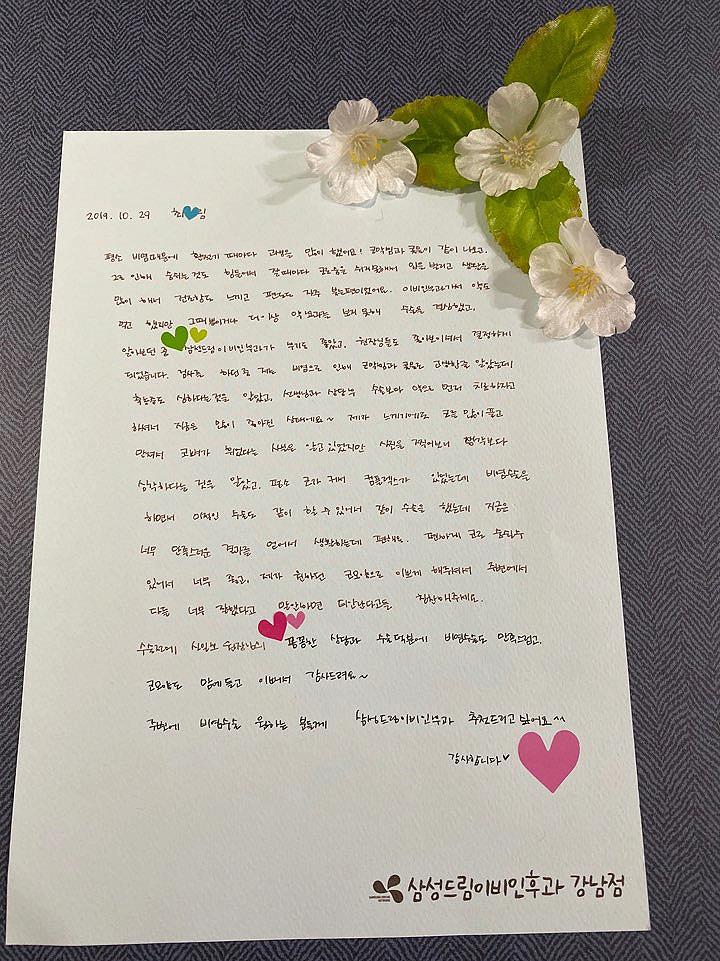 2019. 10. 29 최 림
평소 비염때문에 환절기 때마다 고생을 많이 했어요! 코막힘과 콧물이 같이 나오고.
그로 인해 숨쉬는것도 힘들어서 잘 때마다 코로숨을 쉬지못해서 입을 벌리고 생활을
많이 해서 건조함도 느끼고 편도도 자주 붓는편이었어요. 이비인후과가서 약도
먹고 했지만 그때뿐이거나 더이상 약효과는 보지 못해 수술을 결심했고,
알아보던 중 삼성드림이비인후과가 후기도 좋았고. 원장님들도 좋아보이셔서 결정하게
되었습니다. 검사를 하던 중 저는 비염으로 인해 코막힘과 콧물로 고생한줄 알았는데
축농증도 심하다는것을 알았고, 선생님과 상담후 수술보다 약으로 먼저 치료하자고
하셔서 지금은 많이 좋아진 상태에요~ 제가 느끼기에도 코를 많이 풀고
만져서 코뼈가 휘었다는 사실은 알고 있었지만 사진을 찍어보니 생각보다
심각하다는 것을 알았고. 평소 코가 컴플렉스가 있었는데 비염수술을
하면서 미적인 수술도 같이 할 수 있어서 같이 수술을 했는데 지금은
너무 만족스러운 결과를 얻어서 생활하는데 편해요. 편하게 코로 숨쉴수
있어서 너무 좋고, 제가 원하던 코모양으로 이쁘게 해주셔서 주변에서
다들 너무 잘됐다고 말안하면 티안난다고들 칭찬해주세요.
수술전에 신일호 원장님의 꼼꼼한 상담과 수술 덕분에 비염수술도 만족스럽고.
코모양도 맘에 들고 이뻐서 감사드려요~
주변에 비염수술 원하는 분들께 삼성드림이비인후과 추천드리고 싶어요^^
감사합니다♥
삼성드림이비인후과 강남점